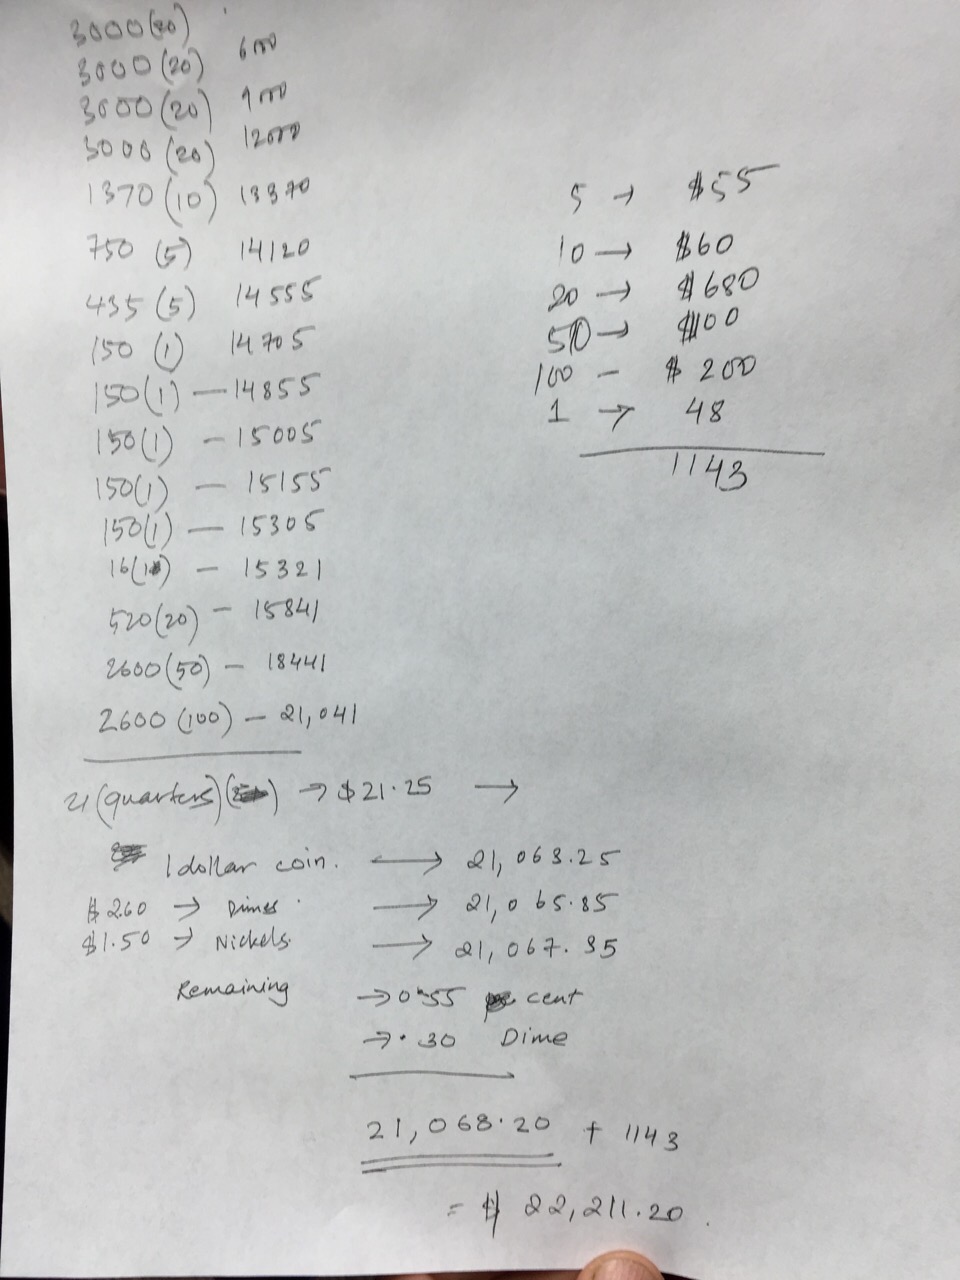 3000(20)
3000(20) 6000
3000(20) 9000
3000(20) 12000
1370(10) 13370
750(5) 14120
435(5) 14555
150(1) 14705
150(1) — 14855
150(1) — 15005
150(1) — 15155
150(1) — 15305
16(1) — 15321
520(20) — 15841
2600(50) — 18441
2600(100) — 21,041
5 → $55
10 → $60
20 → $680
50 → $100
100 — $200
1 → 48
1143
21(quarters) → $21.25 →
1 dollar coin. → 21,063.25
$2.60 → Dimes. → 21,065.85
$1.50 → Nickels. → 21,067.35
Remaining → 0.55 cent
→ .30 Dime
21,068.20 + 1143
= $22,211.20.